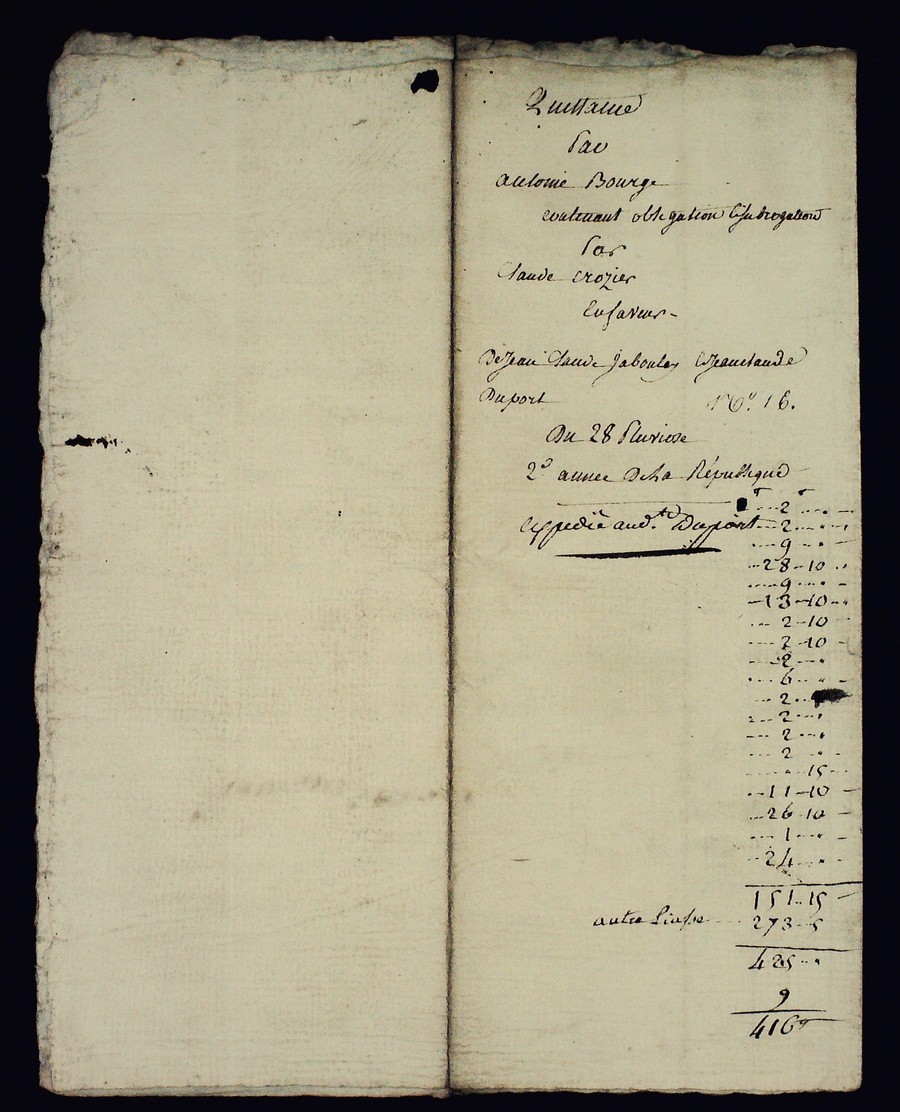 Quittance
Par
Antoine Bourge
contenant obligation & subrogation
Par
Claude Crozier
En faveur -
De Jean Claude Jaboulay & Jean Claude
Duport
N.° 16.
Du 28 Pluviose
2e annee De La République
Expedié aud.t Duport
2
2
9
28 - 10
9
13 - 10
2 - 10
2 - 10
2
6
2
2
2
2
15
11 - 10
26 - 10
1
24
151 - 15
autre Liasse 273 - 5
425
9
416